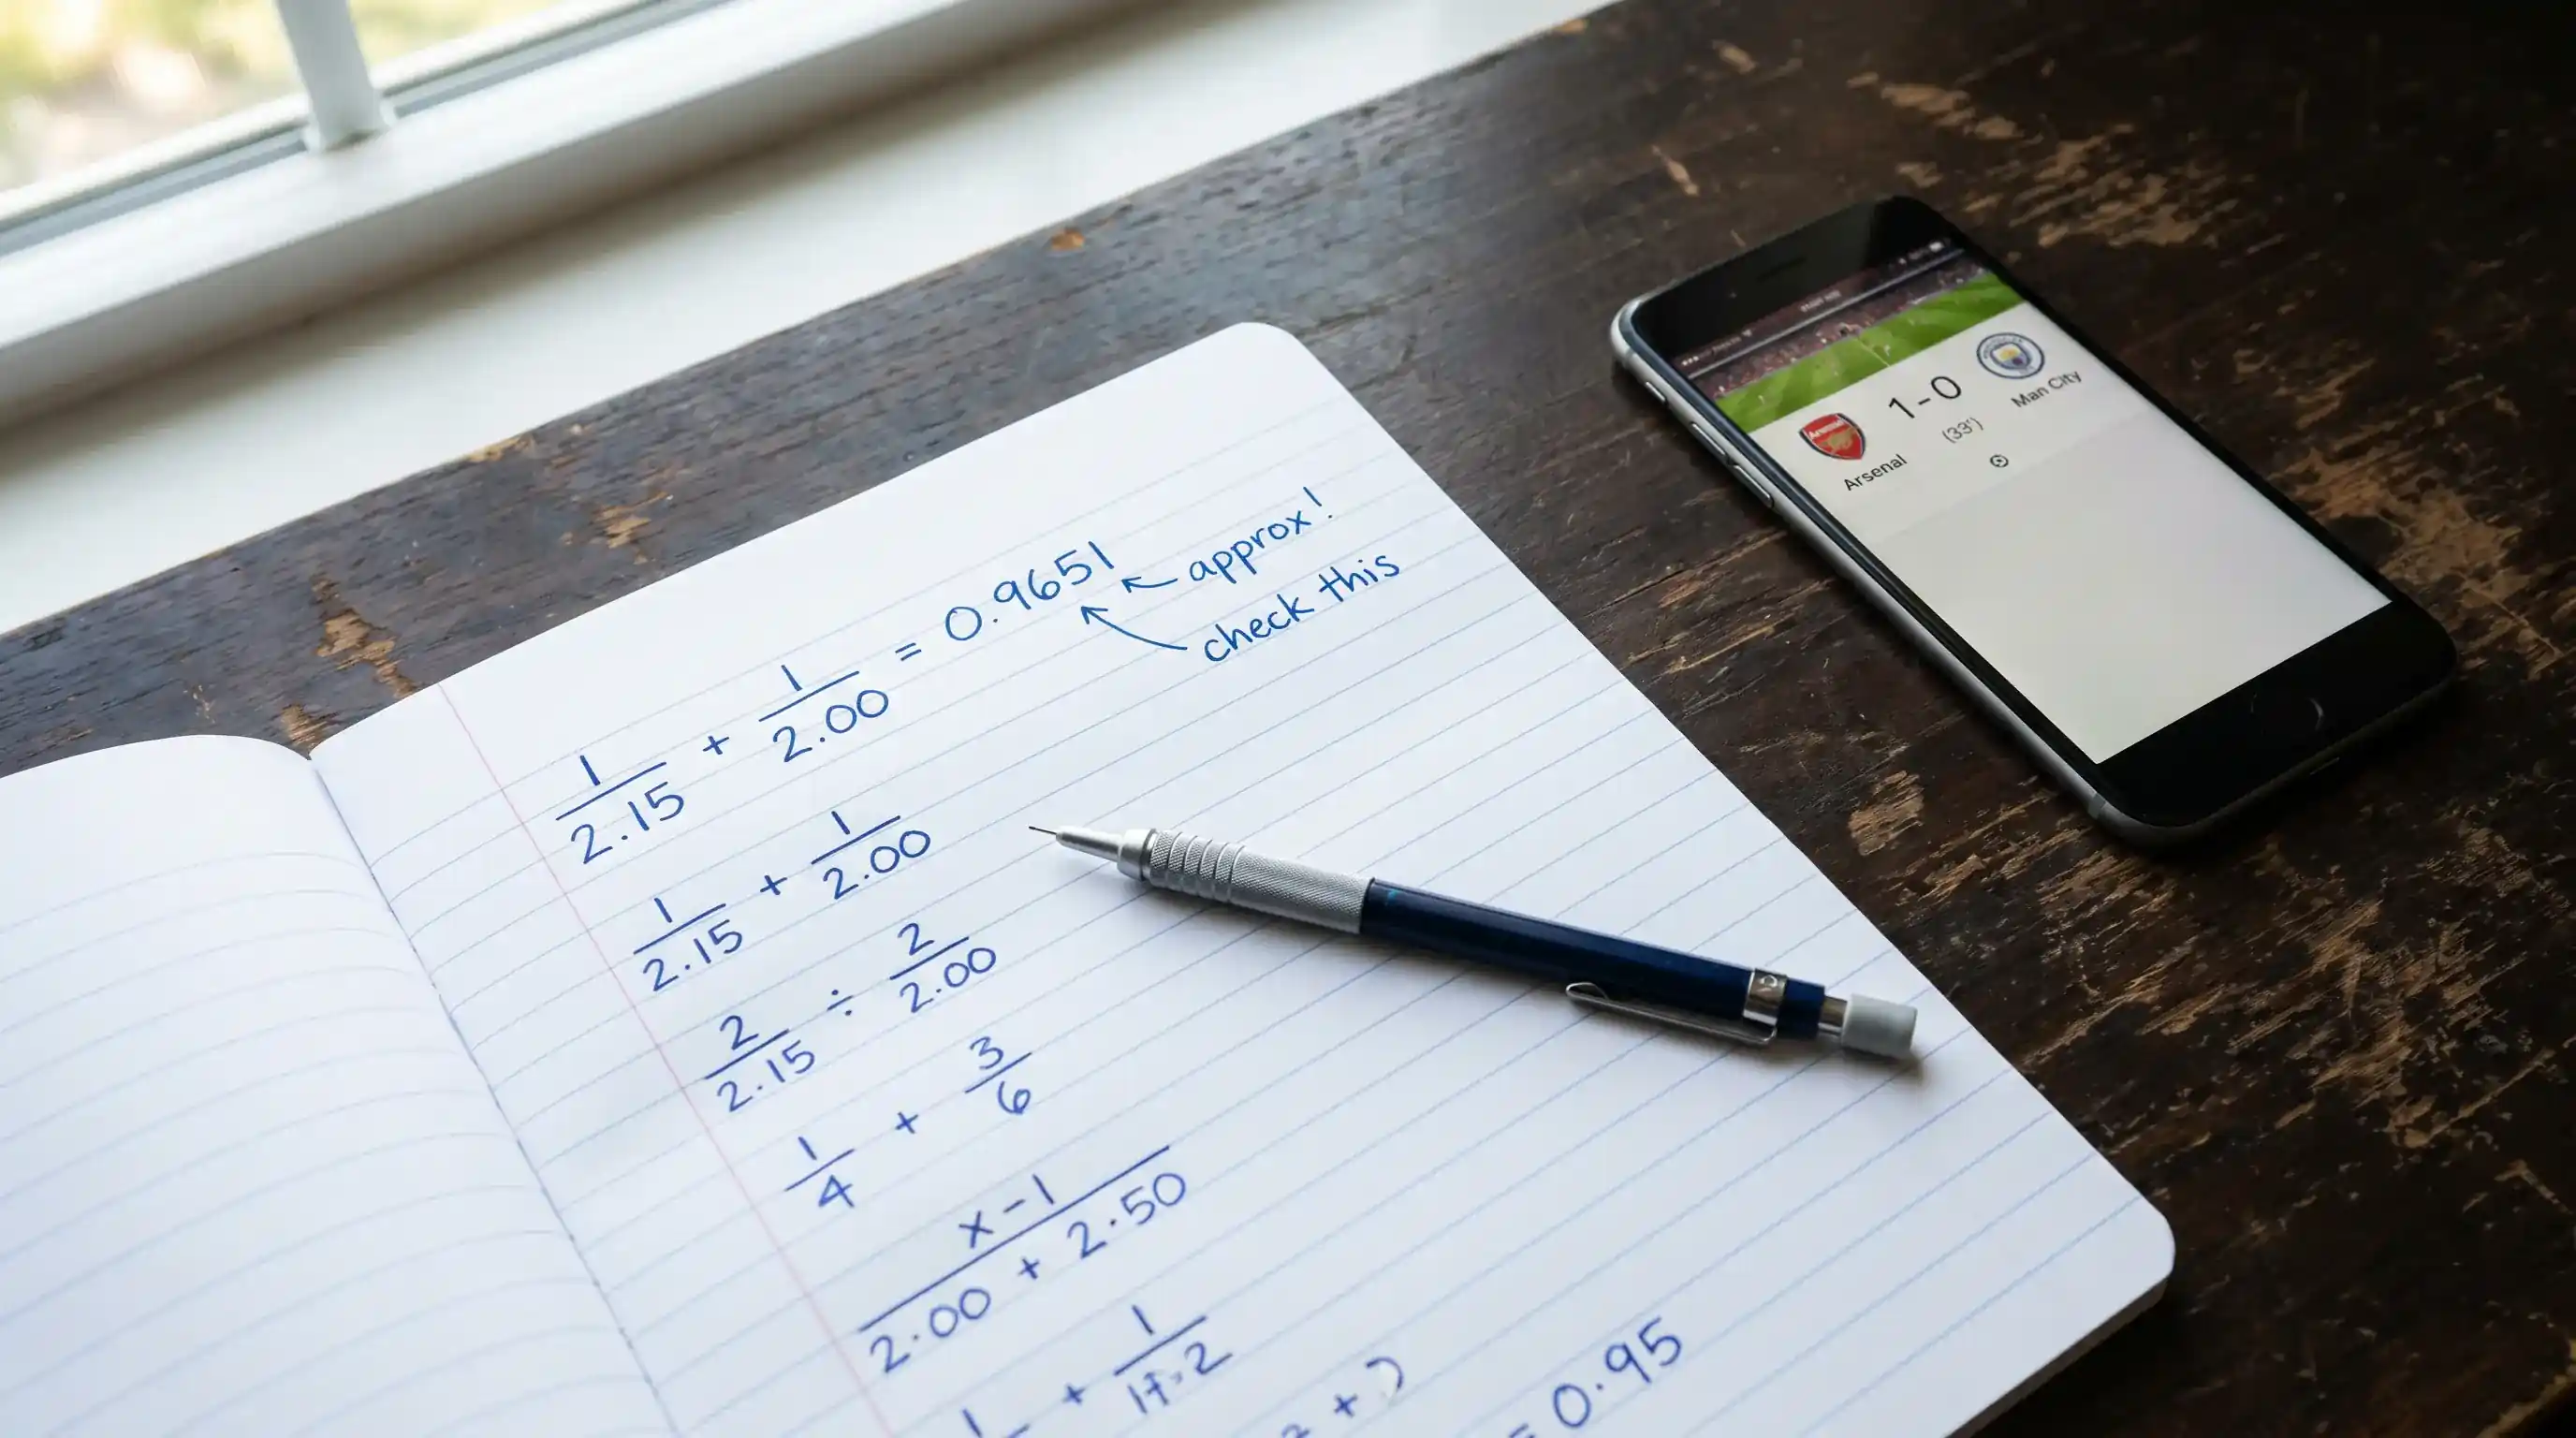 1/2.15 + 1/2.00 = 0.9651 ← approx!
check this
1/2.15 + 1/2.00
2/2.15 ÷ 2/2.00
1/4 + 3/6
x-1/2.00 + 2.50
1 + 1
= 0.95
Arsenal
1-0
(33')
Arsenal
Man City